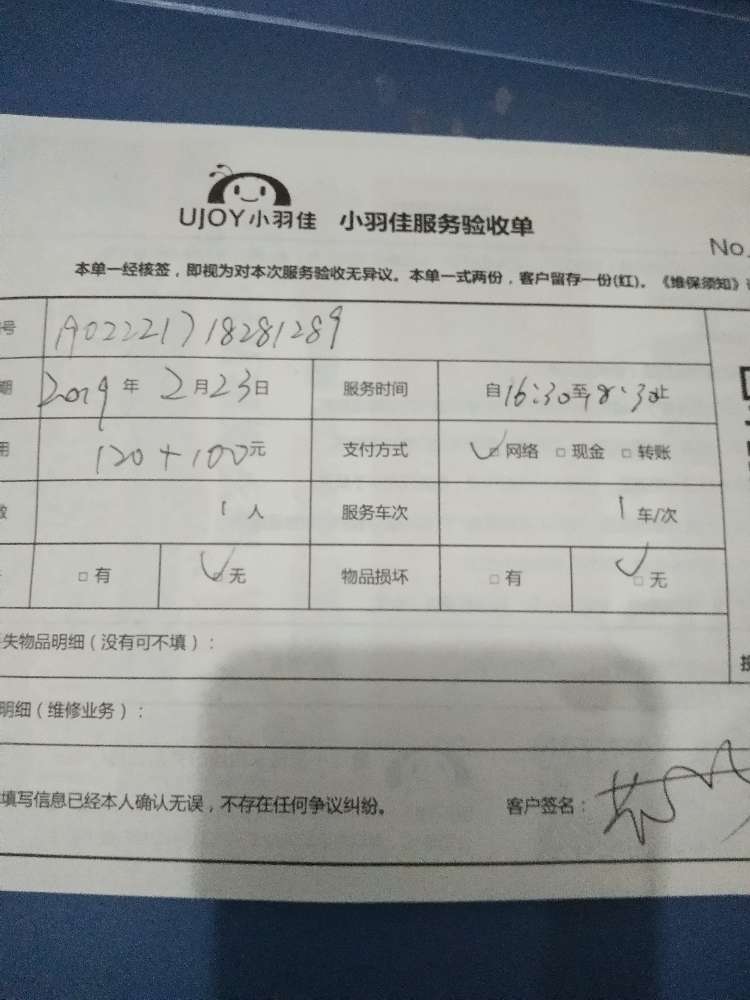 UJOY小羽佳 小羽佳服务验收单
No.
本单一经核签，即视为对本次服务验收无异议。本单一式两份，客户留存一份(红)。《维保须知》
号 A02221718281289
期 2019年2月23日 服务时间 自16:30至8:30止
用 120+100元 支付方式 ☑网络 □现金 □转账
数 1人 服务车次 1车/次
□有 ☑无 物品损坏 □有 ☑无
失物品明细（没有可不填）：
明细（维修业务）：
填写信息已经本人确认无误，不存在任何争议纠纷。 客户签名：